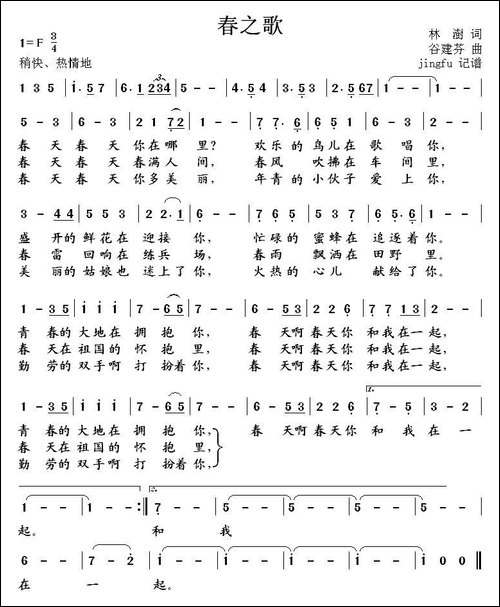 春之歌
1=F 3/4
林 澍 词
谷建芬 曲
稍快、热情地
jingfu 记谱
1 3 5 | i· 5 7 | 6· 1 234 | 5 - - | 4·5 4 | 3·4 3 | 2·5 67 | 1 - - | 1 - - |
5 - 3 | 6 - 3 | 2 1 72 | 1 - - | 77· 6 | 6 5 1 | 6 - 5 | 6 - - |
春 天春 天 你在哪 里? 欢乐 的 鸟儿在 歌 唱你,
春 天春 天 春满人 间, 春风 吹拂在 车 间里,
春 天春 天 你多美 丽, 年青 的小伙子 爱 上你,
3 - 44 | 5 5 3 | 22·1 | 6 - - | 7 65 | 5 3 7 | 2 2 6 | 65·6 | 1 - - |
盛 开的 鲜花在 迎接 你, 忙碌 的 蜜蜂在 追逐着 你。
春 雷 回响在 练兵 场, 春雨 飘洒在 田野 里。
美 丽的 姑娘也 迷上了 你, 火热 的 心儿 献给了 你。
1 - 35 | i i i | 7 - 65 | 5 - - | 6 - 53 | 2 2 6 | 7 6 5 | 1 - - | 1 - - |
青 春的 大地在 拥 抱 你, 春 天啊春天你 和我在一起,
春 天在 祖国的 怀 抱 里, 春 天啊春天你 和我在一起,
勤 劳的 双手啊 打 扮着 你, 春 天啊春天你 和我在一起,
2.
1 - 35 | i i i | 7 - 65 | 5 - - | 6 - 53 | 2 2 6 | 7 - 5 | 3 - 2 |
青 春的 大地在 拥 抱 你, 春 天啊春天你 和 我 在 一
春 天在 祖国的 怀 抱 里,
勤 劳的 双手啊 打 扮着 你,
1 - - | 1 - - :|| 7 - - | 5 - - | 5 - - | 5 - - | 5 - - |
起。 和 我
6 - - | 7 - 2 | i - - | i - - | i - - | i - - | i 0 0 ||
在 一 起。